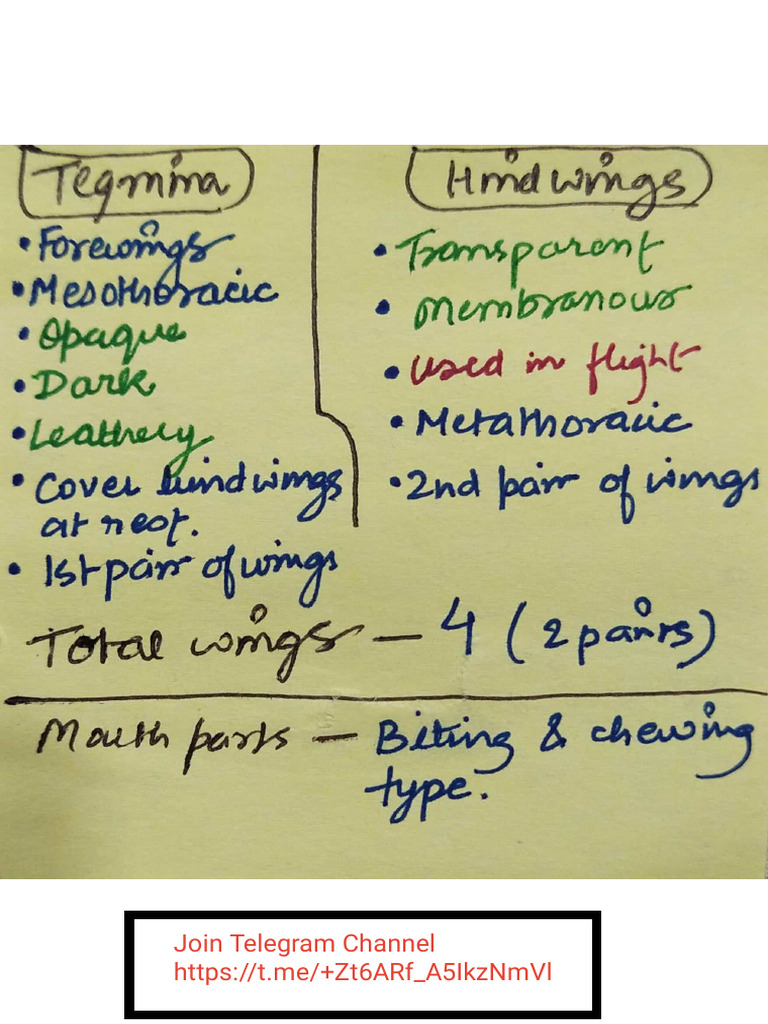 Tegmina
• Forewings
• Mesothoracic
• Opaque
• Dark
• Leathery
• Cover hind wings
at rest.
• 1st pair of wings
Hind wings
• Transparent
• Membranous
• Used in flight
• Metathoracic
• 2nd pair of wings
Total wings — 4 (2 pairs)
Mouth parts — Biting & chewing
type.
Join Telegram Channel
https://t.me/+Zt6ARf_A5IkzNmVl